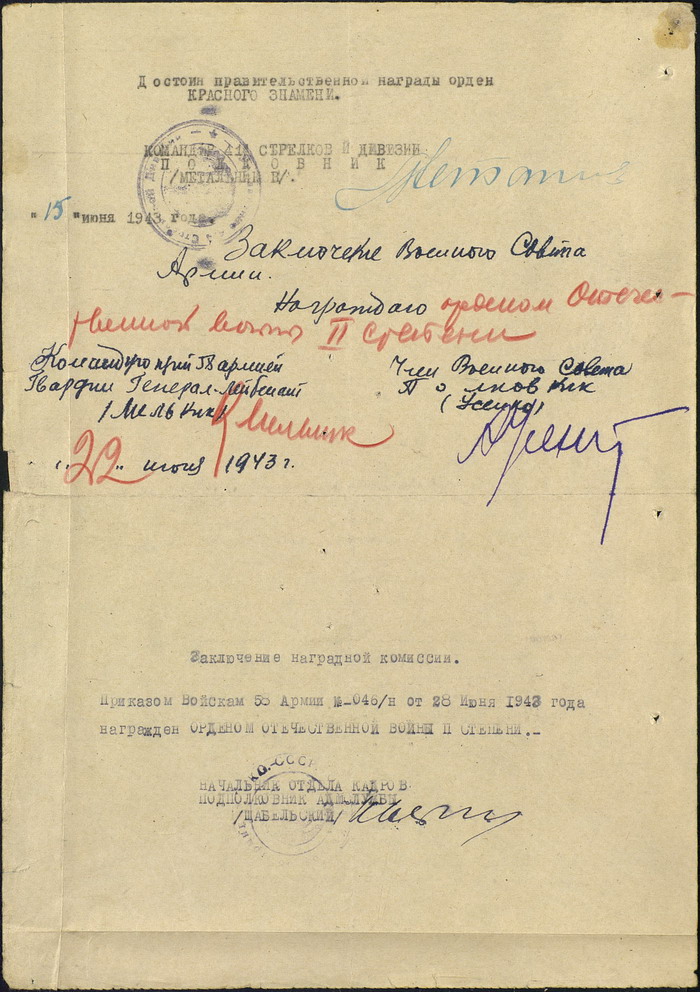 Достоин правительственной награды орден
КРАСНОГО ЗНАМЕНИ.
КОМАНДИР 414 СТРЕЛКОВ Й ДИВИЗИИ
П О Л К О В Н И К
/МЕТАЛЬНИК /.
" 15 " июня 1943 года
Заключение Военного Совета
Армии.
Награждаю орденом Отече-
ственной войны II степени
Член Военного Совета
Гвардии Генерал-лейтенант
П о лковник
/Мельник/
Мельник
" 22 " июня 1943 г.
Заключение наградной комиссии.
Приказом Войскам 58 Армии №-046/н от 28 Июня 1943 года
награжден ОРДЕНОМ ОТЕЧЕСТВЕННОЙ ВОЙНЫ П СТЕПЕНИ._
НАЧАЛЬНИК ОТДЕЛА КАДРОВ
ПОДПОЛКОВНИК АДМ.СЛУЖБЫ
/ЩАБЕЛЬСКИЙ/